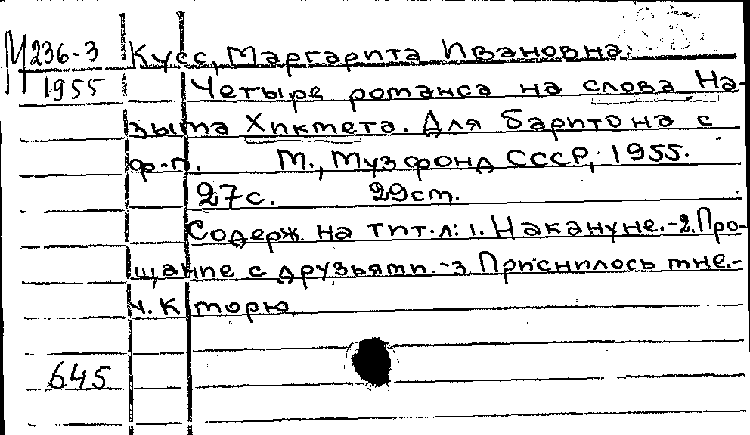 М236-3 Кусс, Маргарита Ивановна.
1955 Четыре романса на слова На-
зыма Хикмета. Для баритона с
ф-п. М., Музфонд СССР, 1955.
27с. 29см.
Содерж. на тит.л: 1. Накануне.-2.Про-
щание с друзьями.-3. Приснилось мне.-
4. К морю
645